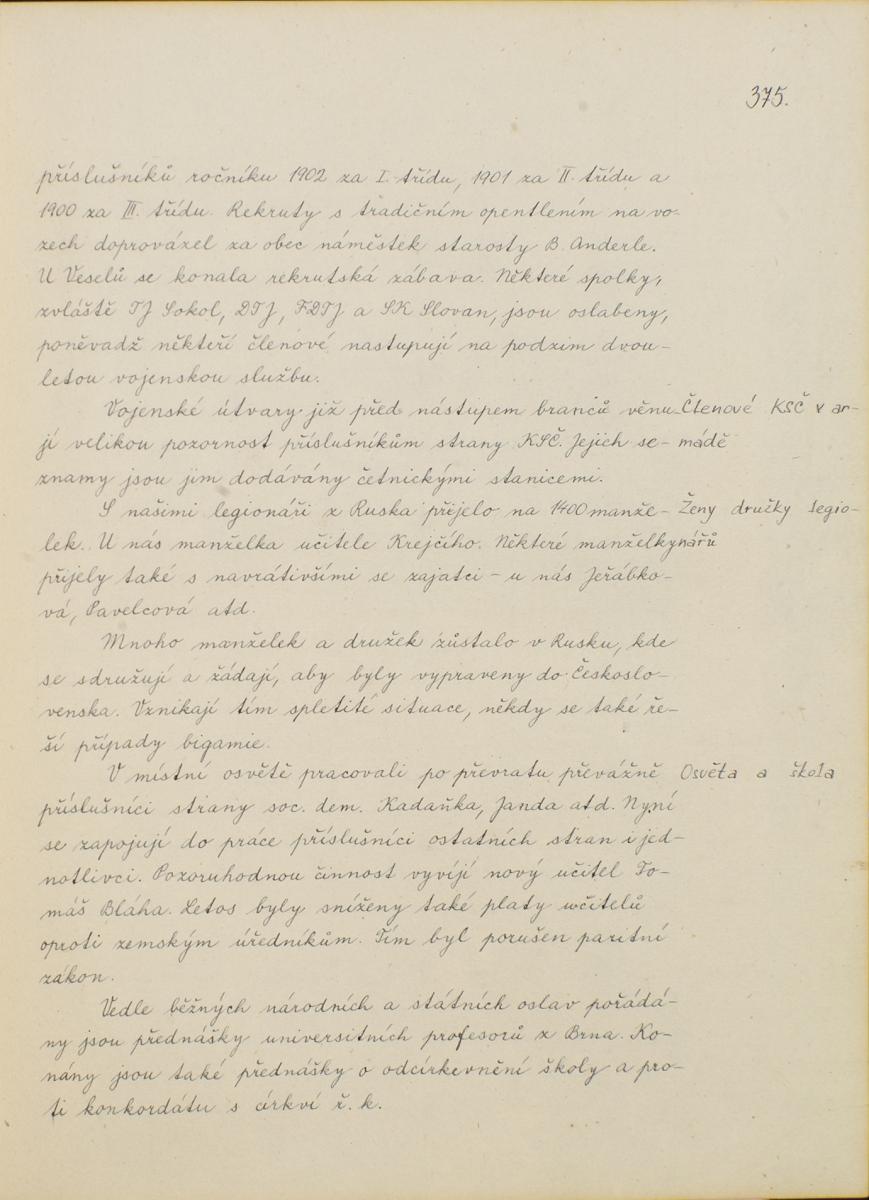 375.
příslušníků ročníku 1902 za I. třídu, 1901 za II. třídu a
1900 za III. třídu. Rekruty s tradičním opentlením na vo-
zech doprovázel za obec náměstek starosty B. Anderle.
U Veselů se konala rekrutská zábava. Některé spolky,
zvláště TJ Sokol, DTJ, FDTJ a SK Slovan, jsou oslabeny,
poněvadž někteří členové nastupují na podzim dvou-
letou vojenskou službu.
Vojenské útvary již před nástupem branců věnu- Čtenové KSČ v ar-
jí velikou pozornost příslušníkům strany KSČ. Jejich se- mádě
znamy jsou jim dodávány četnickými stanicemi.
S našimi legionáři z Ruska přijelo na 1400 manže- Ženy družky legio-
lek. U nás manželka učitele Krejčího. Některé manželky nářů
přijely také s navrátivšími se zajatci - u nás Jeřábko-
vá, Pavelcová atd.
Mnoho manželek a družek zůstalo v Rusku, kde
se sdružují a žádají, aby byly vypraveny do Českoslo-
venska. Vznikají tím spletité situace, někdy se také ře-
ší případy bigamie.
V místní osvětě pracovali po převratu převážně Osvěta a škola
příslušníci strany soc. dem. Kadaňka, Janda atd. Nyní
se zapojují do práce příslušníci ostatních stran i jed-
notlivci. Pozoruhodnou činnost vyvíjí nový učitel To-
máš Bláha. Letos byly sníženy také platy učitelů
oproti zemským úředníkům. Tím byl porušen paritní
zákon.
Vedle běžných národních a státních oslav pořádá-
ny jsou přednášky universitních profesorů z Brna. Ko-
nány jsou také přednášky o odcírkevnění školy a pro-
ti konkordátu s církví ř. k.